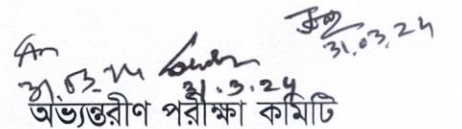 31.03.24
31.03.24
31.3.24
অভ্যন্তরীণ পরীক্ষা কমিটি